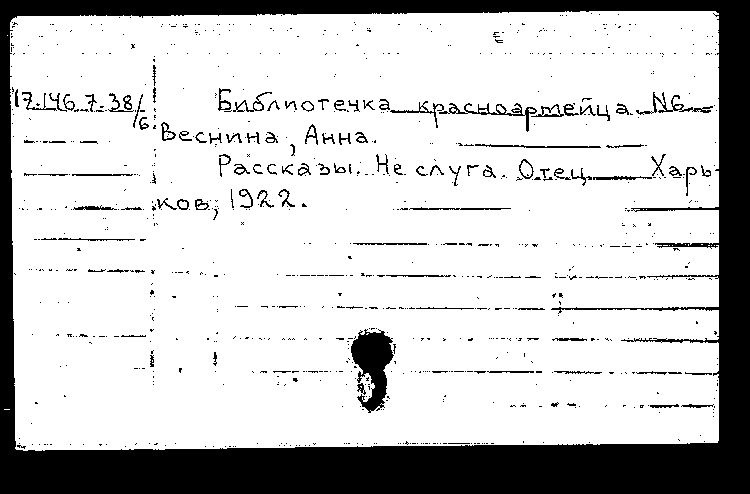 17.146.7.38/6
Библиотечка красноармейца. N6
Веснина, Анна.
Рассказы. Не слуга. Отец. Харь-
ков, 1922.